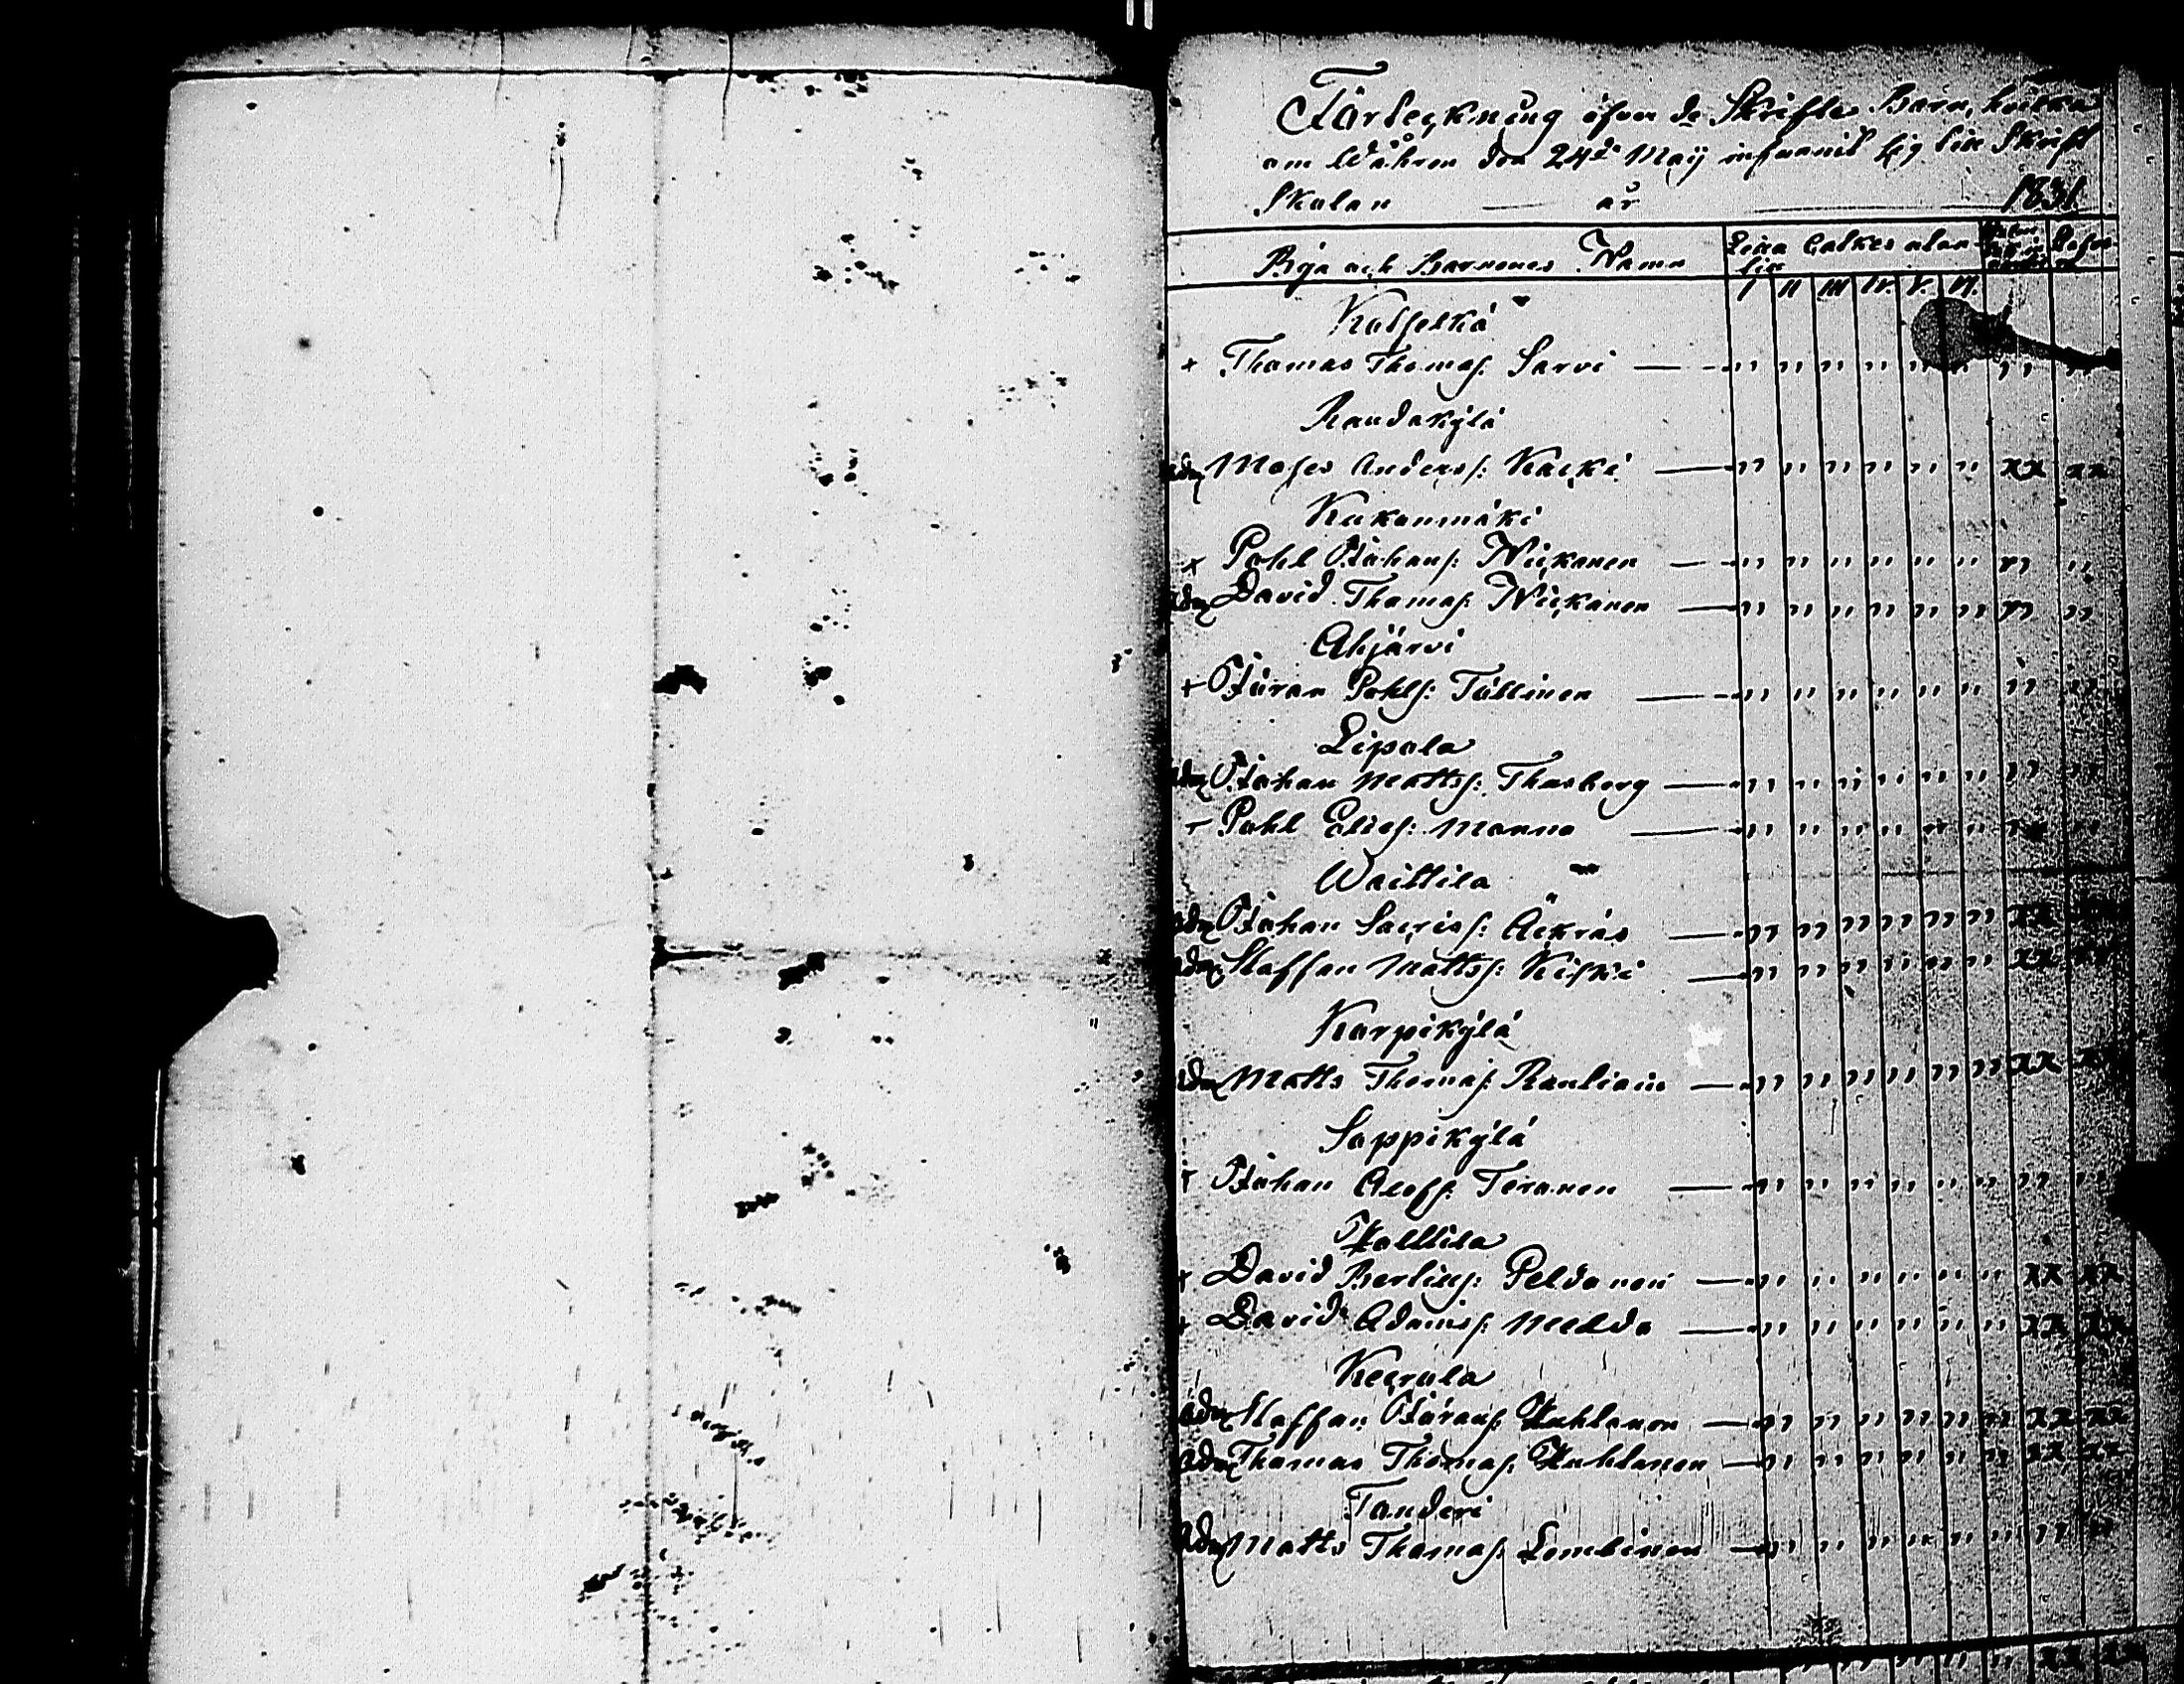 Förteckning öfver de Skrifte Barn, hvilka
om Våhren den 24de Maij infunnit sig till Skrift
Skolan — år — 1831.
Byä och Barnenes Namn
I II III IV. V. VI.
Kotselkä
+ Thomas Thomass: Sarvi — " " " " " " " "
Raudakylä
adm Moses Anderss: Kaeki — " " " " " " xx xx
Kukonmäki
+ Pohl Johans: Wickonen — " " " " " " " "
adm David Thomas: Wickonen — " " " " " " " "
Ahjärvi
+ Göran Pohls: Tällinen — " " " " " " " "
Lipola
adm Johan Matts: Thusberg — " " " " " " " "
+ Pohl Elies: Monno — " " " " " " " "
Waittila
adm Johan Sacris: Äckräs — " " " " " " xx xx
adm Staffan Matts: Kiski — " " " " " " xx xx
Korpikylä
adm Matts Thomas: Rauliain — " " " " " " xx xx
Soppikylä
+ Johan Olofs: Teranen — " " " " " " " "
Jålttila
+ David Bertils: Peldonen — " " " " " " xx xx
+ David Adams: Mulda — " " " " " " xx xx
Keerala
adm Staffan Görans: Juhlanen — " " " " " " xx xx
adm Thomas Thomas: Juhlanen — " " " " " " xx xx
Tanderi
adm Matts Thomas: Lembinen — " " " " " " " "